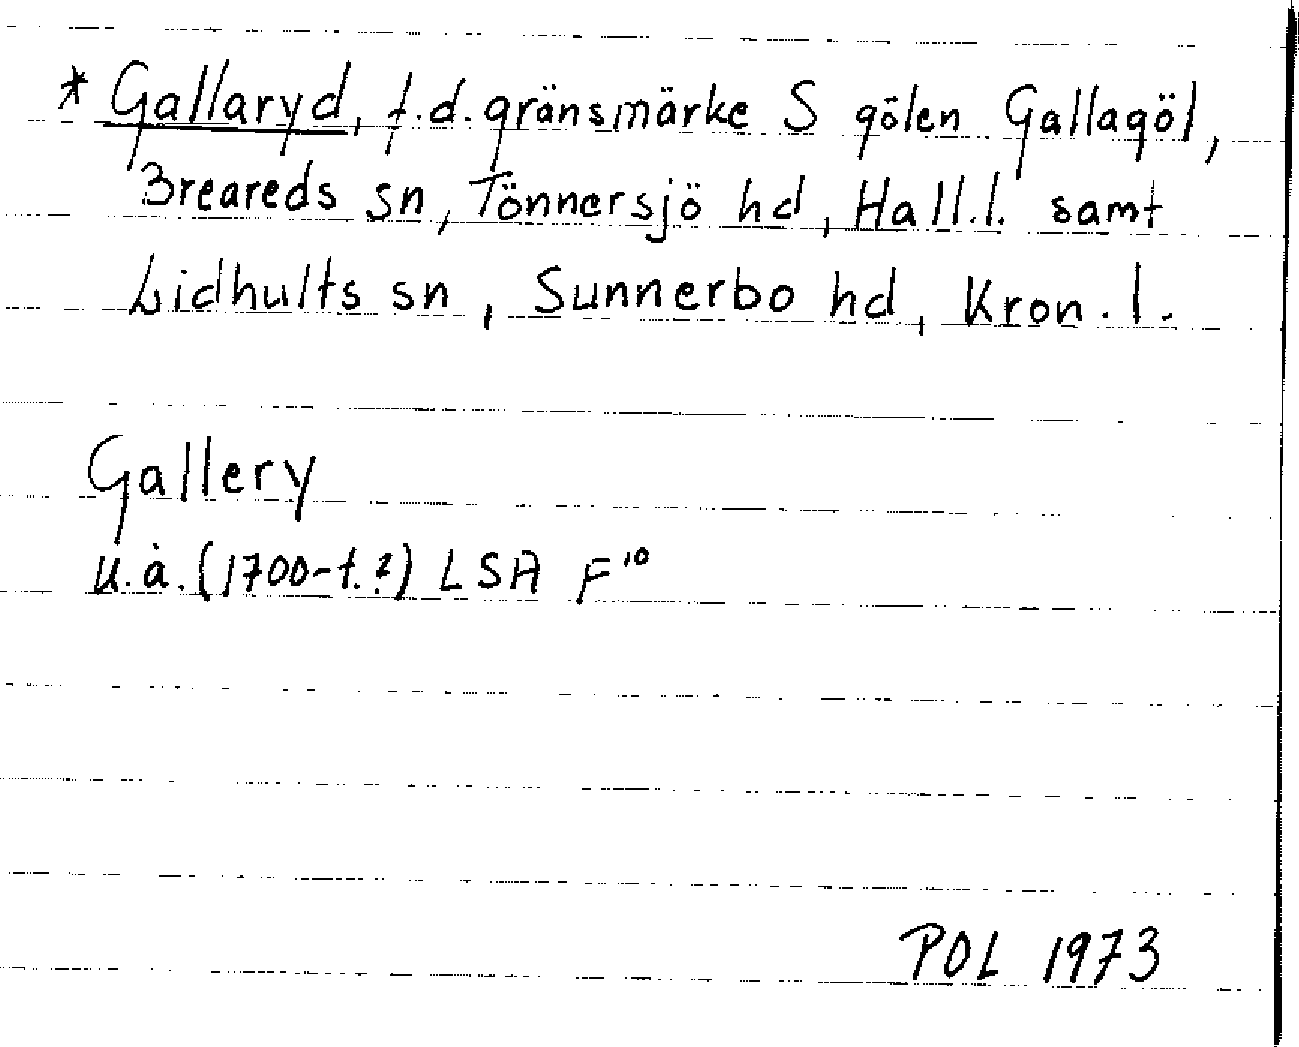 * Gallaryd, f.d. gränsmärke S gölen Gallagöl,
Breareds sn, Tönnersjö hd, Hall.l. samt
Lidhults sn, Sunnerbo hd, Kron.l.
Gallery
u.å. (1700-t.?) LSA F¹⁰
POL 1973